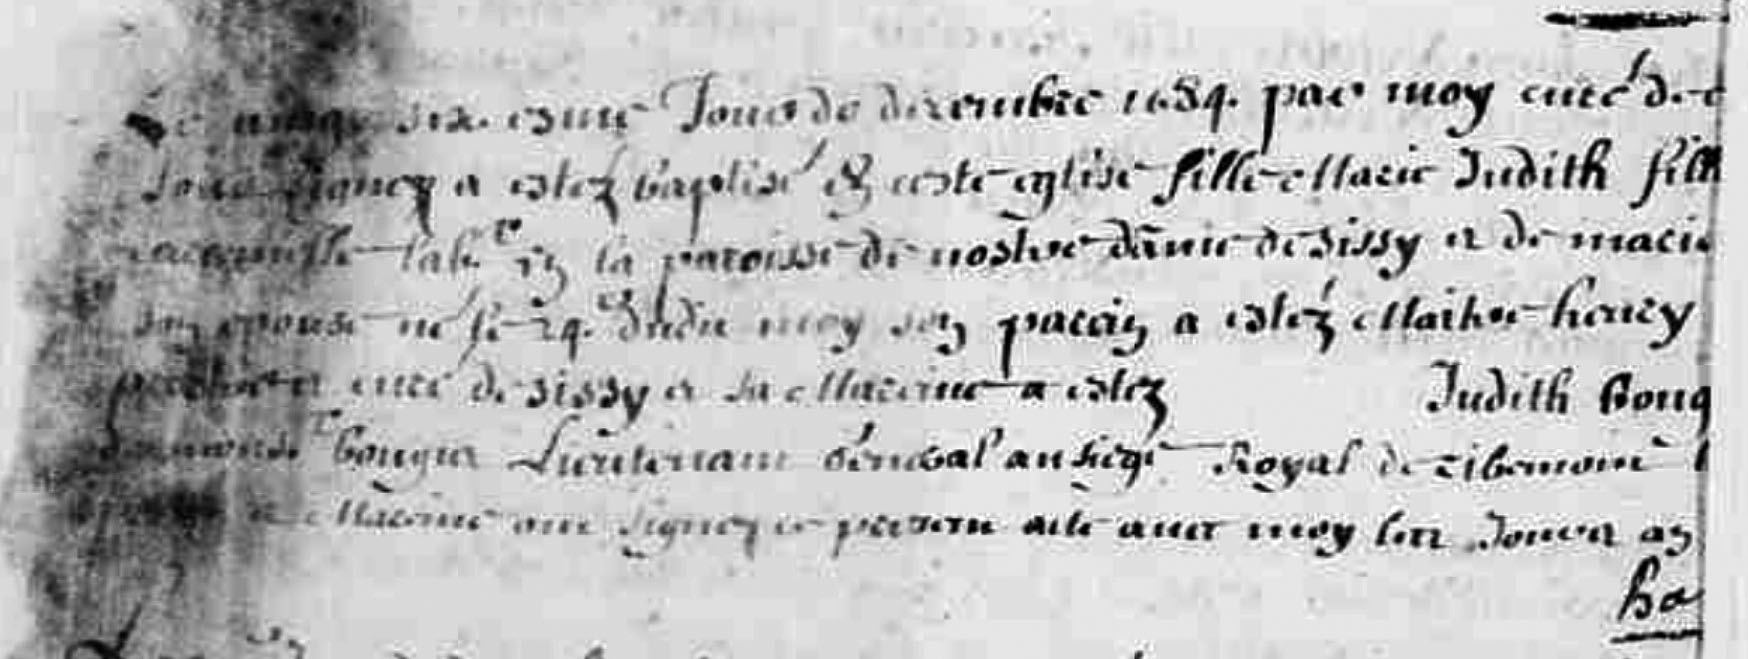 Le vingt six. esme Jour de decembre 1684. par moy curé de
sous signey a estez baptisé en ceste eglise fille Marie Judith fill
lab.r en la paroisse de nostre dame de sissy et de marie
son epouse né le 24.e dudit moy son parein a estez Maitre henry
curé de sissy et sa Mareine a estez Judith Boug
bougier Lieutenant General au siege Royal de ribemont
et Mareine ont signez ce present acte avec moy les Jour et an
Ba